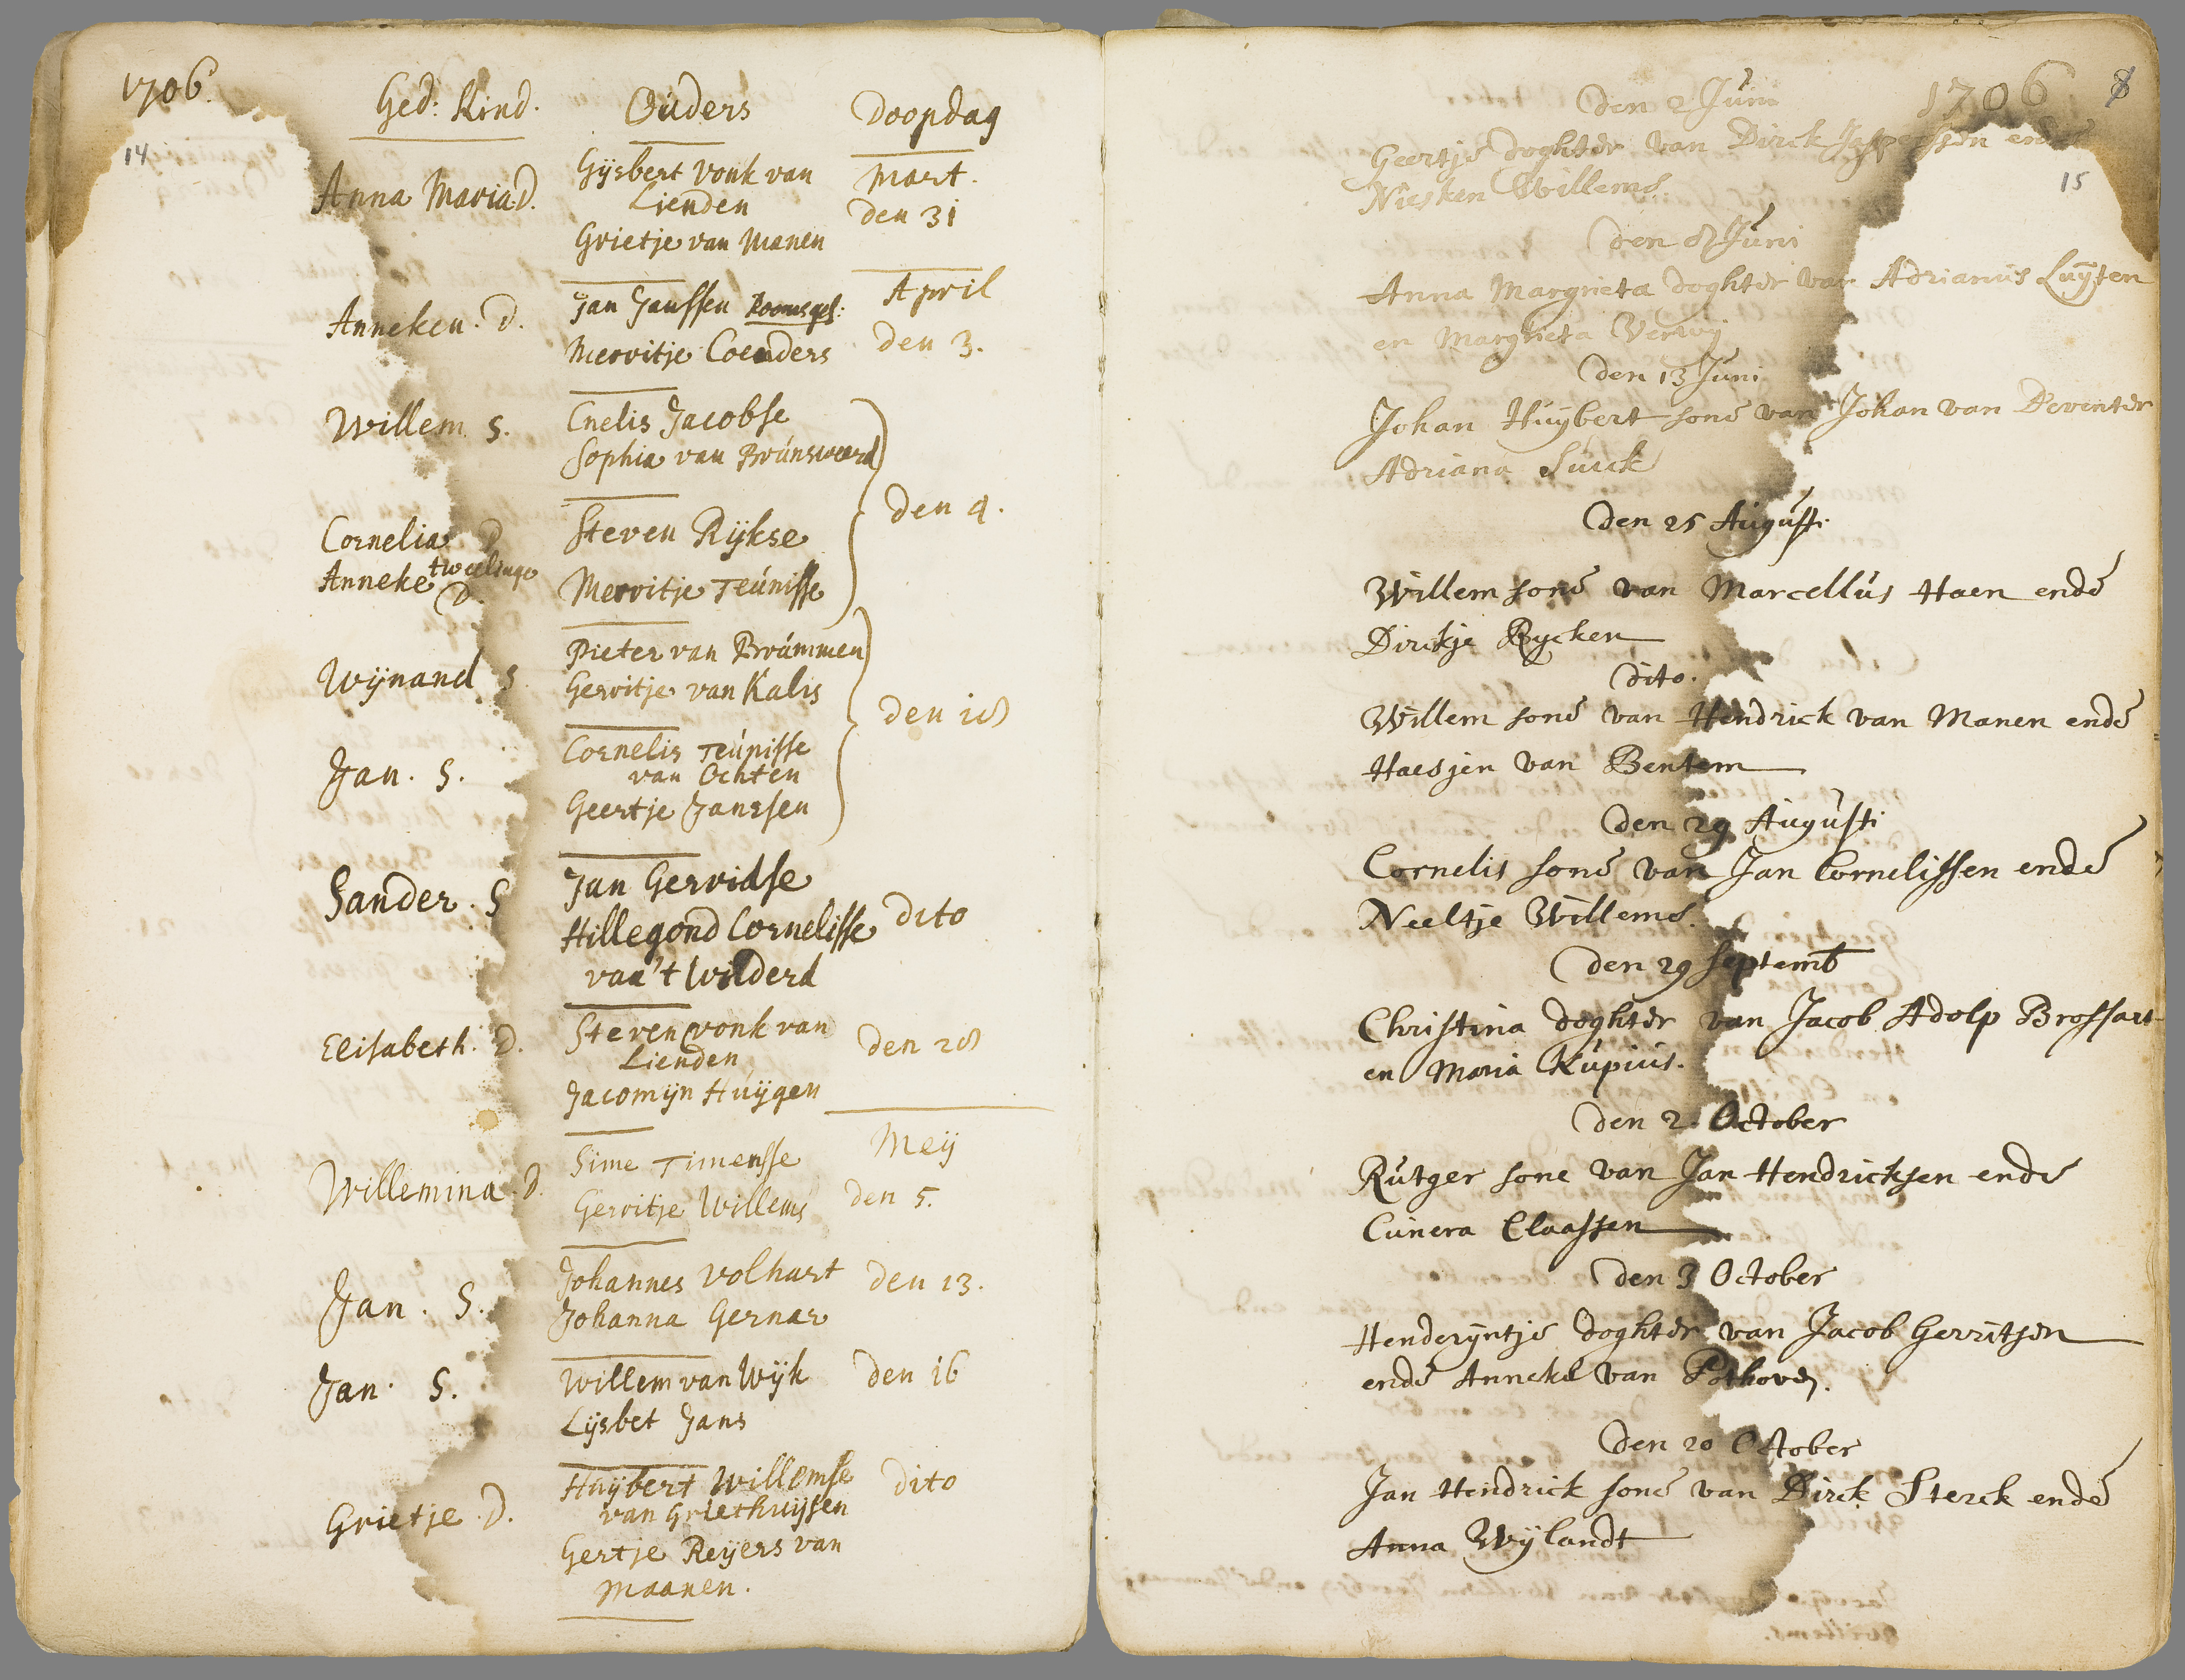 1706.
14
Ged: Kind. Ouders Doopdag
Anna Maria D. Gijsbert vonk van Mart.
Lienden den 31
Grietje van Manen
Anneken. D. Jan Janssen Roomsges: April
Merritje Coenders den 3.
Willem. S. Cnelis Jacobse
Sophia van Brúnsweerd
den 4.
Cornelia D Steven Rijkse
tweelinge
Anneke D. Merritje Teúnisse
Wijnand S Pieter van Brúmmen
Gerritje van Kalis
den 18
Jan. S. Cornelis Teúnisse
van Ochten
Geertje Janssen
Sander. S Jan Gerridse
Hillegond Cornelisse dito
van 't Wilderd
Elisabeth. D. Steven vonk van den 28
Lienden
Jacomijn Huijgen
Willemina. D. Sime Timensse Meij
Gerritje Willems den 5.
Jan. S. Johannes Volhart den 13.
Johanna Gernar
Jan. S. Willem van Wijk den 16
Lijsbet Jans
Grietje. D. Huijbert Willemse dito
van Griethuijsen
Gertje Reijers van
Maanen.
1706 8
15
Den 2 Juni
Geertje doghter van Dirck Jasperssen ende
Niesken Willems.
Den 8 Juni
Anna Margrieta doghter van Adrianus Luijten
en Margrieta Verwij
Den 13 Juni
Johan Huijbert sone van Johan van Deventer
Adriana Surck
Den 25 Augusti.
Willem sone van Marcellus Haen ende
Dirckje Rycken
Dito.
Willem sone van Hendrick van Manen ende
Haesjen van Bentem
Den 29 Augusti
Cornelis sone van Jan Cornelissen ende
Neeltje Willems.
Den 29 Septemb
Christina doghter van Jacob Adolp Brossart
en Maria Kupius.
Den 2. October
Rutger sone van Jan Hendricksen ende
Cunera Claassen
Den 3 October
Henderijntje doghter van Jacob Gerritsen
ende Anneke van Pothoven.
Den 20 October
Jan Hendrick sone van Dirck Sterck ende
Anna Wijlandt